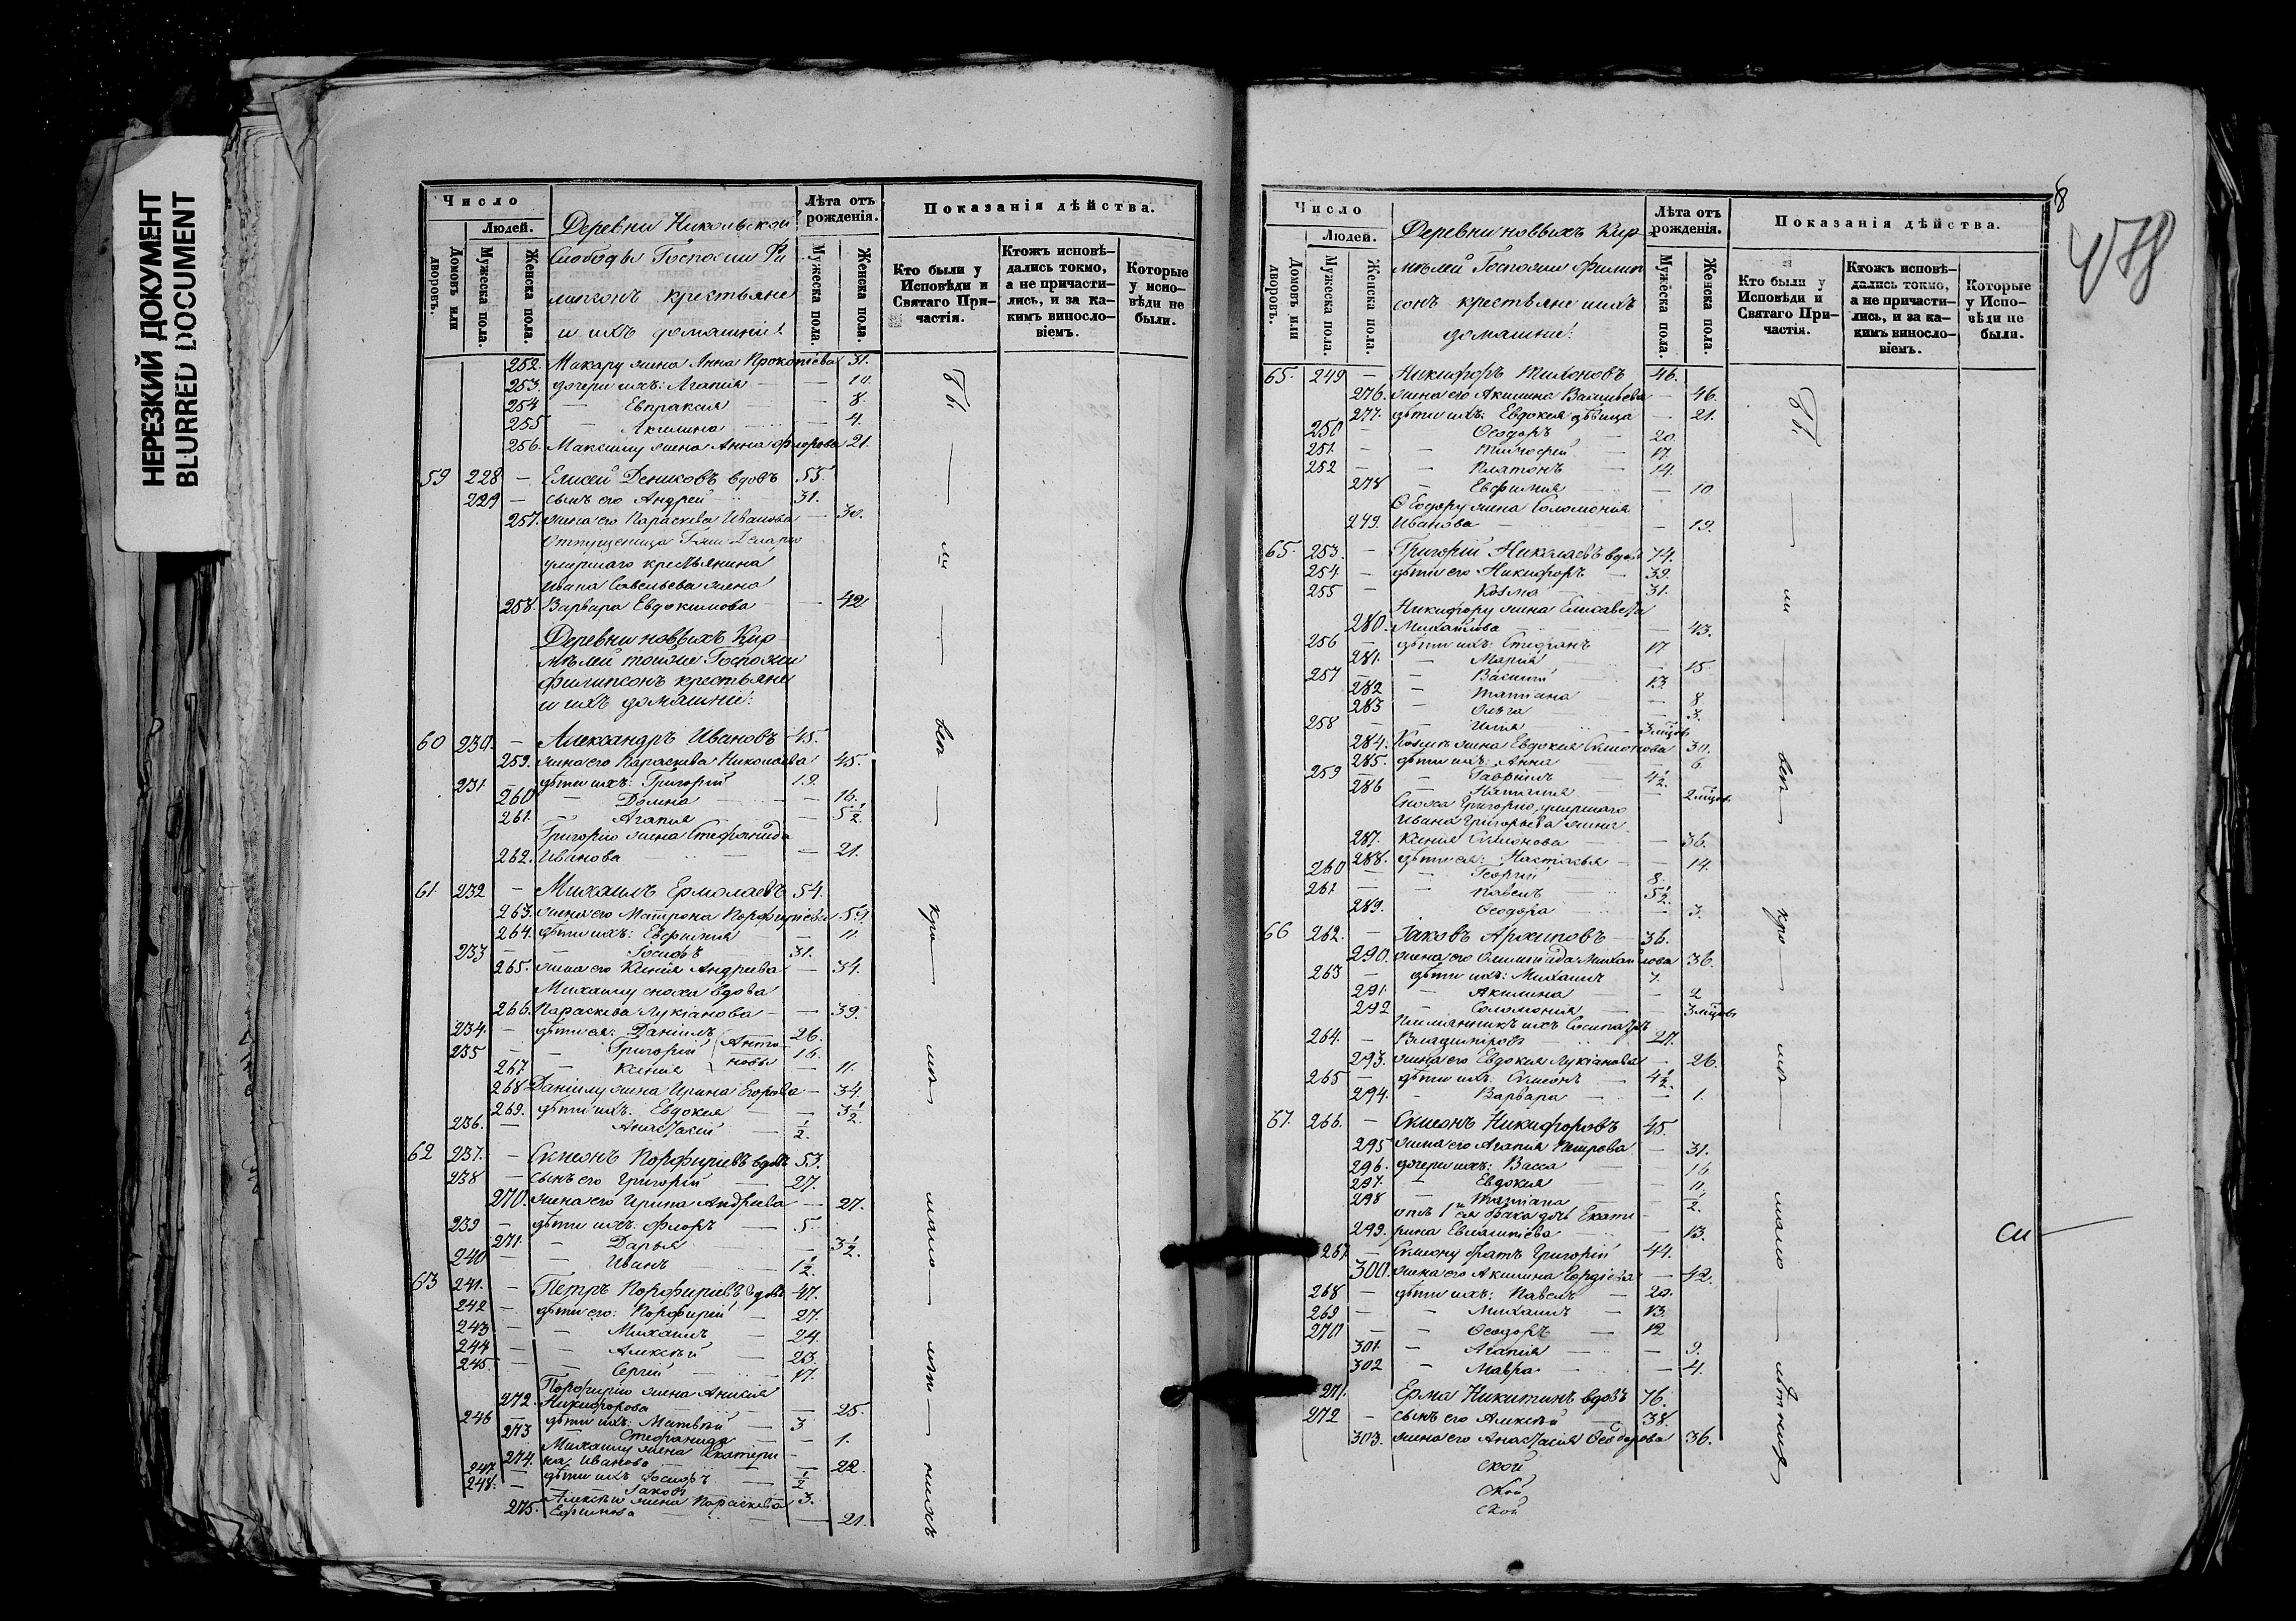 НЕРЕЗКИЙ ДОКУМЕНТ
BLURRED DOCUMENT
Число
Людей.
Домовъ или дворовъ.
Мужеска пола.
Женска пола.
Деревни Никольской
Слободы Госпожи Фи
липсонъ крестьяне
и ихъ домашніе:
Лѣта отъ рожденія.
Мужеска пола.
Женска пола.
Показанія дѣйства.
Кто были у Исповѣди и Святаго Причастія.
Ктожъ исповѣдались токмо, а не причастились, и за какимъ винословіемъ.
Которые у исповѣди не были.
252. Макару жена Анна Прокопіева 31.
253. дочери ихъ: Агапія — — 10.
254 — Евпраксія — — 8.
255 — Акилина — 4.
256. Максиму жена Анна Флорова 21.
59 228 — Елисей Дениsовъ вдовъ 55.
229 — сынъ его Андрей 31.
257. жена его Параскева Иванова — 30.
Отпущеница Г-жи
умершаго крестьянина
Ивана Савельева жена
258. Варвара Евдокимова — 42
Деревни новыхъ Кир
мѣлей тойже Госпожи
Филипсонъ крестьяне
и ихъ домашніе:
60 230. — Александръ Ивановъ 45.
259. жена его Параскева Николаева 45.
231 — дѣти ихъ: Григорій 19.
260 — Домна — 16.
261. — Агапія — 5½.
Григорію жена Стефанида
262. Иванова — — 21.
61 232 — Михаилъ Ермолаевъ 54.
263. жена его Матрона Порфиріева 51
264. дѣти ихъ: Евфимія — 11.
233 — — Іосифъ 31.
265. жена его Ксенія Андреева — 34.
Михаилу сноха вдова
266. Параскева Лукіанова — — 39.
234. — дѣти ея: Даніилъ 26.
235 — — Григорій Анто 16.
267 — Ксенія новы — 11.
268 Даніилу жена Ирина Егорова — 34.
269. дѣти ихъ: Евдокія — 3½
236. — Анастасій ½.
62 237. — Симеонъ Порфиріевъ вдовъ 53.
238 — сынъ его Григорій — 27.
270. жена его Ирина Андреева — 27.
239 — дѣти ихъ: Флоръ — 5
271. — Дарья — 3½.
240 — — Иванъ 1½.
63 241. — Петръ Порфиріевъ вдовъ 47.
242 — дѣти его: Порфирій — 27.
243 — — Михаилъ — 24.
244 — — Алексѣй — 23.
245 — — Сергій 17.
Порфирію жена Анисія
272. Никифорова — 25.
246 — дѣти ихъ: Матвѣй — 3
273 Стефанида — 1.
Михаилу жена Екатери
274. на Иванова — 22.
247 — дѣти ихъ Іосифъ ½
248. — Іаковъ 3.
Алексѣю жена Параскева
275. Ефимова — 21.
Бы — ли — вси — кро — мѣ — мало — лѣт — нихъ
8
478
Число
Людей.
Домовъ или дворовъ.
Мужеска пола.
Женска пола.
Деревни новыхъ Кир
мѣлей Госпожи Филип
сонъ крестьяне и ихъ
домашніе:
Лѣта отъ рожденія.
Мужеска пола.
Женска пола.
Показанія дѣйства.
Кто были у Исповѣди и Святаго Причастія.
Ктожъ исповѣдались токмо, а не причастились, и за какимъ винословіемъ.
Которые у Исповѣди не были.
65. 249 — Никифоръ Тихоновъ 46.
276. жена его Акилина Васильева — 46.
277. дѣти ихъ: Евдокія дѣвица — 21.
250 — Ѳеодоръ — 20.
251. — — Тимофей — 17.
252 — — Платонъ — 14.
278 — Евфимія — 10
Ѳеодору жена Соломонія
279. Иванова — 19.
65. 253. — Григорій Николаевъ вдовъ 74.
254 — дѣти его Никифоръ — 39.
255 — Козма 31.
Никифору жена Елисавета
280. Михайлова — 43.
256 — дѣти ихъ: Стефанъ 17
281. — Марія — 15.
257 — Василій 13.
282 — Татіана — 8
283 — Ольга — 3.
258 — — Илія 3 мѣсов.
284. Козмѣ жена Евдокія Симеонова 30.
285. дѣти ихъ: Анна — 6.
259 — Гавріилъ 4½.
286 — Наталія — 2 мѣсов.
Сноха Григорію, умершаго
Ивана Григорьева жена
287. Ксенія Симеонова — 36.
288. дѣти ея: Настасья — 14.
260 — — Георгій 8.
261 — — Павелъ 5½.
289. Ѳеодора — 3.
66 262. — Іаковъ Архиповъ — 36.
290. жена его Олимпіада Михайлова 36.
263 — дѣти ихъ: Михаилъ 7.
291. — Акилина — 2
292 — Соломонія 3 мѣсов.
Племянникъ ихъ
264. — Владиміровъ 27.
293. жена его Евдокія Лукіанова — 26.
265 — дѣти ихъ: Симеонъ — 4½.
294. — Варвара — 1.
67. 266. — Симеонъ Никифоровъ 45.
295 жена его Агапія Петрова — 31.
296. дочери ихъ: Васса — 16
297. — Евдокія — 11.
298 — Татіана — ½.
отъ 1го ея брака дочь Екате
299. рина Евлампіева — 13.
267 — Симеону братъ Григорій 44.
300. жена его Акилина Гордіева — 42.
268 — дѣти ихъ: Павелъ — 20.
269 — — Михаилъ — 13.
270 — — Ѳеодоръ — 12
301. — Агапія — 9.
302 — Мавра — 4.
271. Ерма Никитинъ вдовъ 76.
272 — сынъ его Алексѣй — 38.
303. жена его Анастасія Ѳеодорова 36.
Бы — ли — вси — кро — мѣ — мало — лѣтнихъ
ской
ской
ской
См